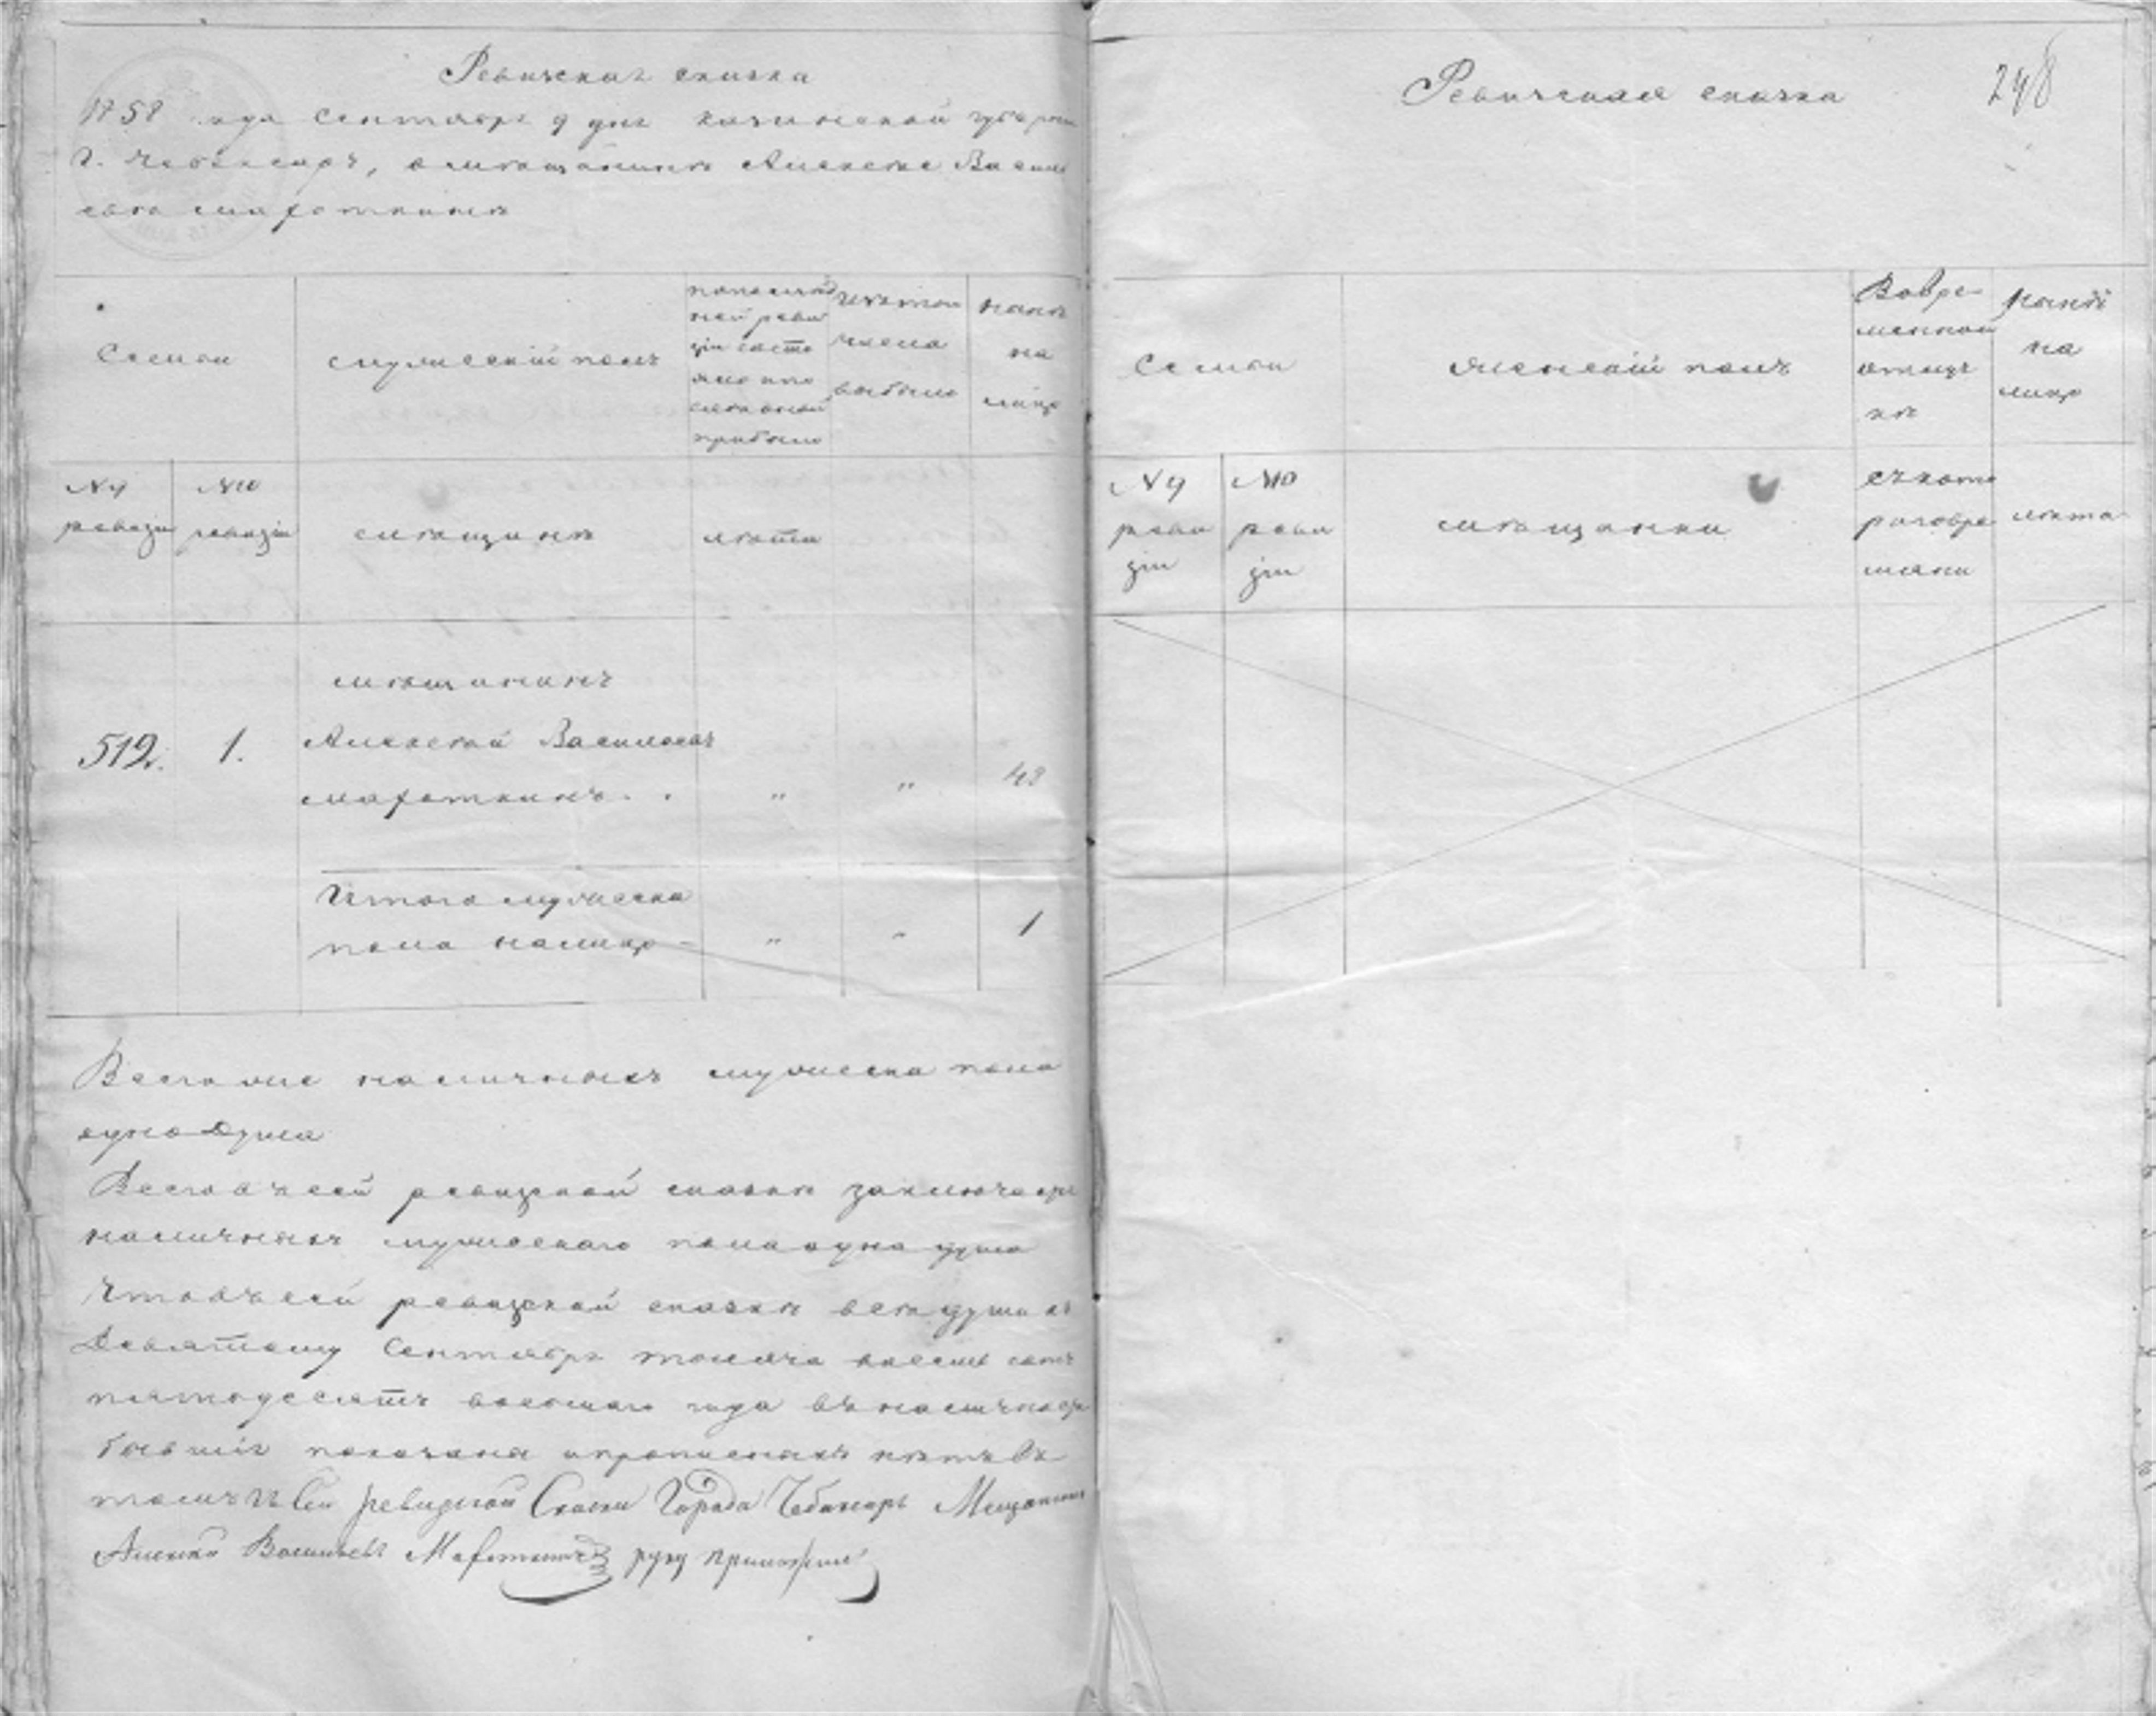 Ревижская сказка
1858 года Сентября 9 дня Казанской губернии
Г. Чебоксаръ, о мѣщанинѣ Алексѣе Василь
евѣ
Семьи
мужескій полъ
по послѣд
ней реви
зіи состо
яло и по
слѣ оной
прибыло
Изъ того
числа
выбыло
нынѣ
на
лицо
№ 9
ревизіи
№ 10
ревизіи
мѣщане
лѣта
мѣщанинъ
519.
1.
Алексѣй Васильевъ
„ „ 43
Итого мужеска
пола налицо - „ „ 1
Всего же наличныхъ мужеска пола
одна душа
Всего въ сей ревизской сказки заключается
наличныхъ мужескаго пола одна душа
Что въ сей ревизской сказки все души къ
Девятому Сентября тысяча восемь сотъ
пятьдесятъ восьмаго года въ наличности
бывшія показаны и прописныхъ нѣтъ въ
томъ къ сей ревизской Скаски Города Чебоксаръ Мещанинъ
Алексей Васильевъ руку приложилъ
Ревижская сказка
248
Семьи
женскій полъ
Во вре
менной
отлуч
кѣ
нынѣ
на
лицо
№ 9
реви
зіи
№ 10
реви
зіи
мѣщанки
съ кото
раго вре
мяни
лѣта